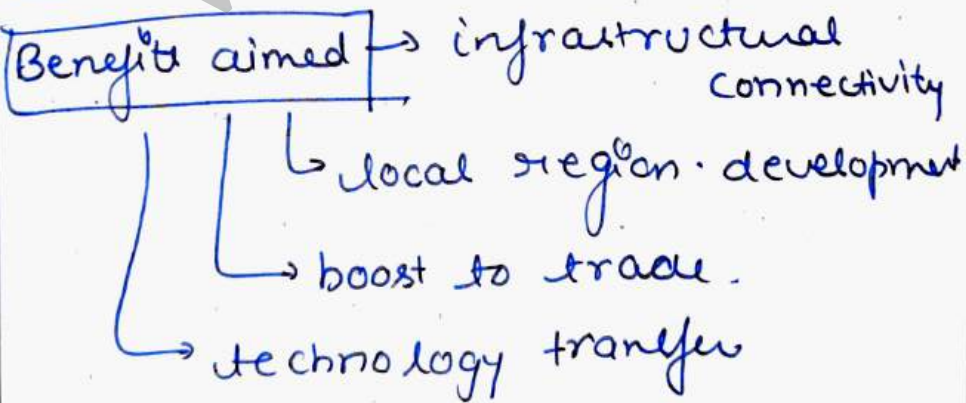 Benefits aimed → infrastructural
connectivity
→ local region development
→ boost to trade.
→ technology transfer